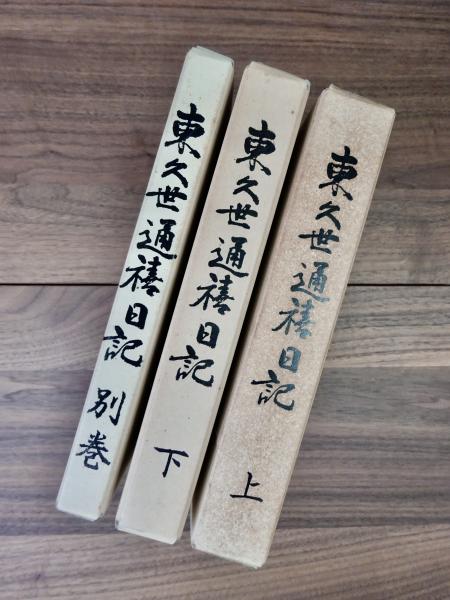 東久世通禧日記 別巻
東久世通禧日記 下
東久世通禧日記 上